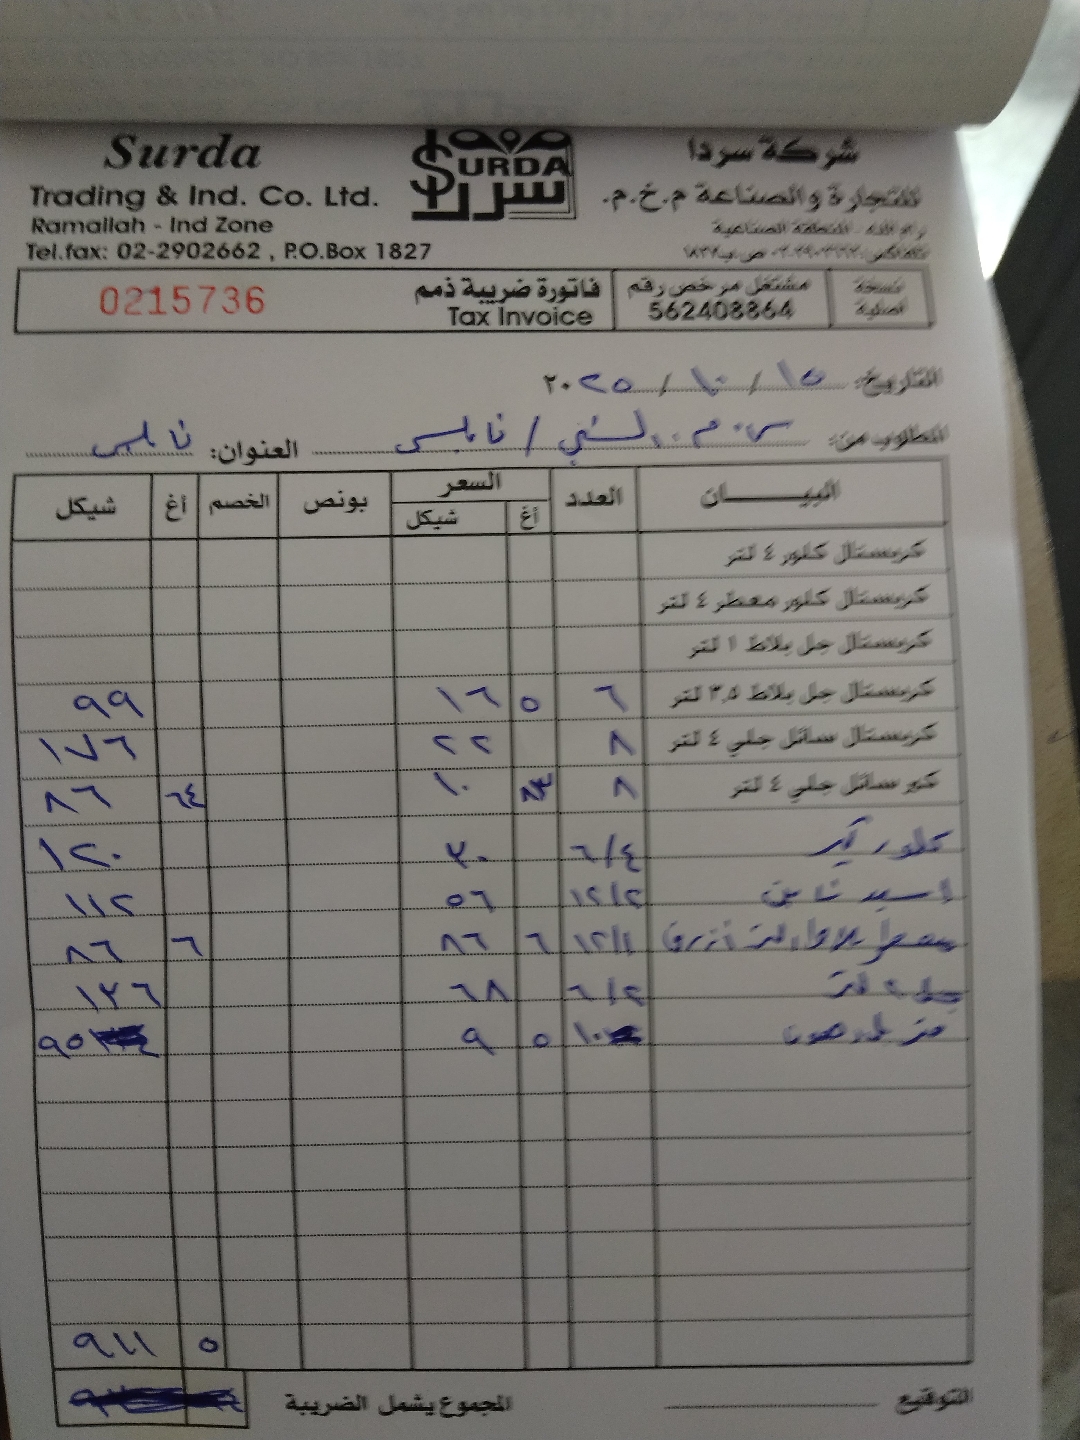 Surda
Trading & Ind. Co. Ltd.
Ramallah - Ind Zone
Tel.fax: 02-2902662 , P.O.Box 1827
SURDA سردا
شركة سردا
للتجارة والصناعة م.خ.م.
رام الله - المنطقة الصناعية
تلفاكس: ٠٢-٢٩٠٢٦٦٢ ص.ب ١٨٢٧
0215736
فاتورة ضريبة ذمم
Tax Invoice
مشتغل مرخص رقم
562408864
نسخة
أصلية
التاريخ: ١٥ / ١٠ / ٢٠٢٥
المطلوب من: / نابلس العنوان: نابلس
البيــــــان العدد السعر بونص الخصم أغ شيكل
أغ شيكل
كريستال كلور ٤ لتر
كريستال كلور معطر ٤ لتر
كريستال جل بلاط ١ لتر
كريستال جل بلاط ٣,٥ لتر ٦ ٥ ١٦ ٩٩
كريستال سائل جلي ٤ لتر ٨ ٢٢ ١٧٦
كور سائل جلي ٤ لتر ٨ ٨٣ ١٠ ٦٤ ٨٦
كلور ٦/٤ ٣٠ ١٢٠
اسيد ١٢/٢ ٥٦ ١١٢
أزرق ١٢/١ ٦ ٨٦ ٦ ٨٦
٦/٢ ٦٨ ١٣٦
١٠ ٥ ٩ ٩٥
٥ ٩١١
المجموع يشمل الضريبة
التوقيع